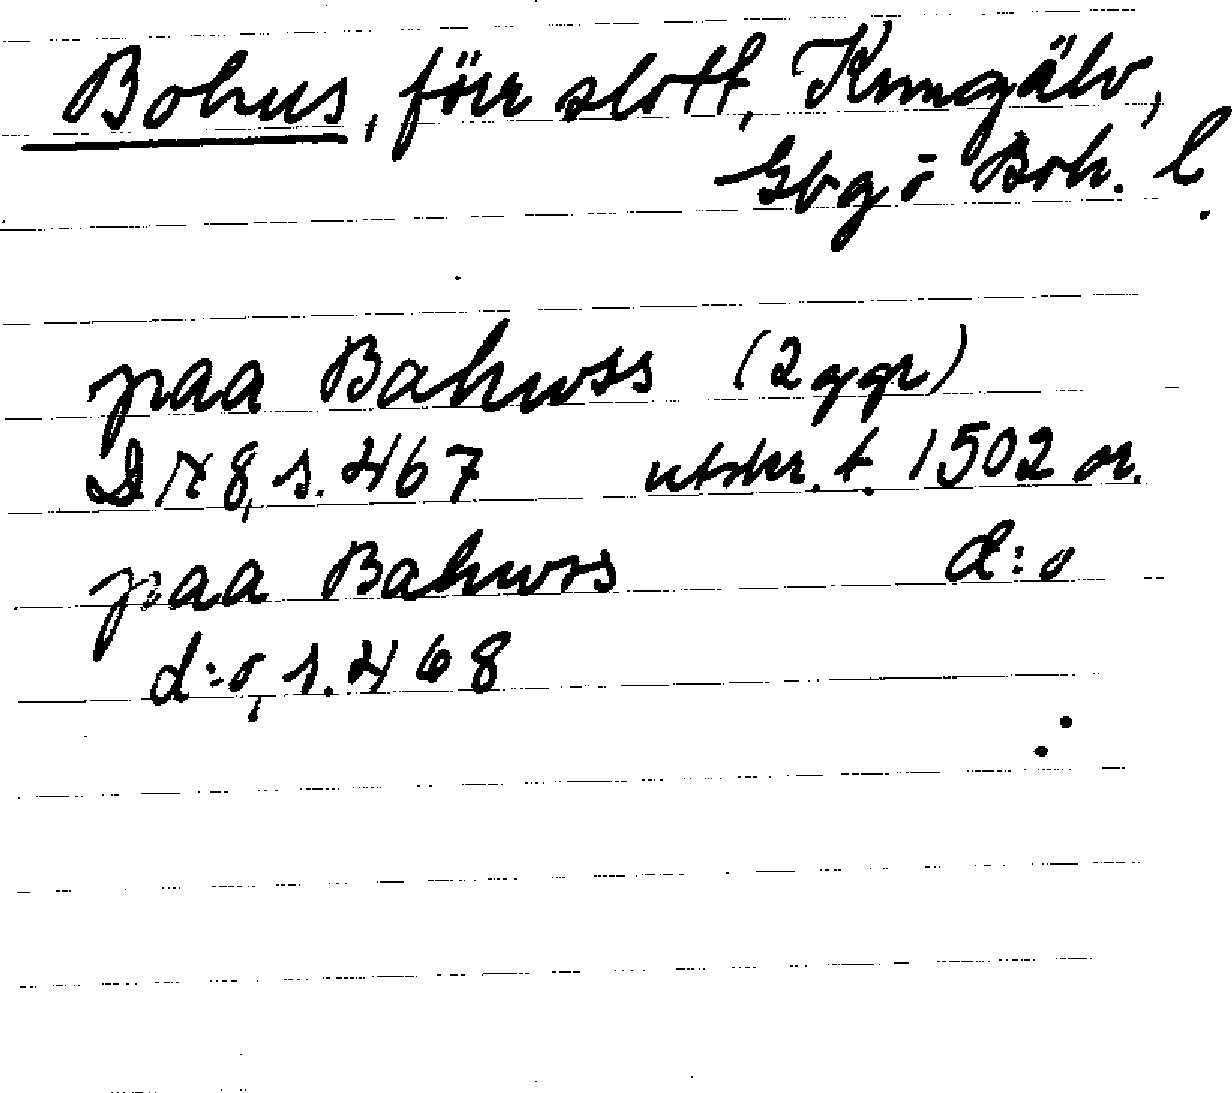 Bohus, förr slott, Kungälv,
Gbg o Boh. l.
paa Bahwss (2 ggr)
DN 8, s. 467 utskr. f. 1502 or.
paa Bahwss d:o
d:o, s. 468